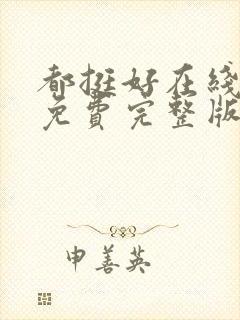 都挺好在线
免费完整版
申善英